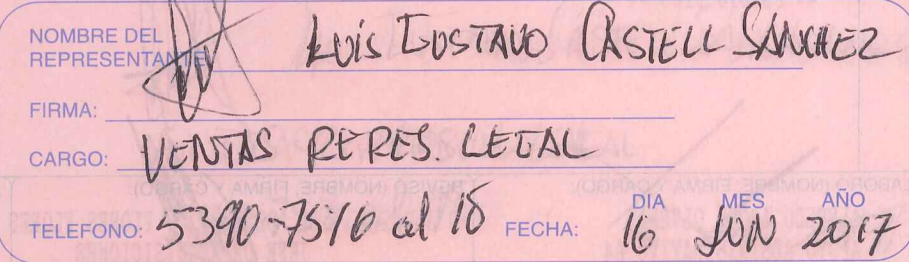 NOMBRE DEL
REPRESENTANTE: LUIS GUSTAVO CASTELL SANCHEZ
FIRMA:
CARGO: VENTAS REPRES. LEGAL
DIA MES AÑO
TELEFONO: 5390-7516 al 18 FECHA: 16 JUN 2017